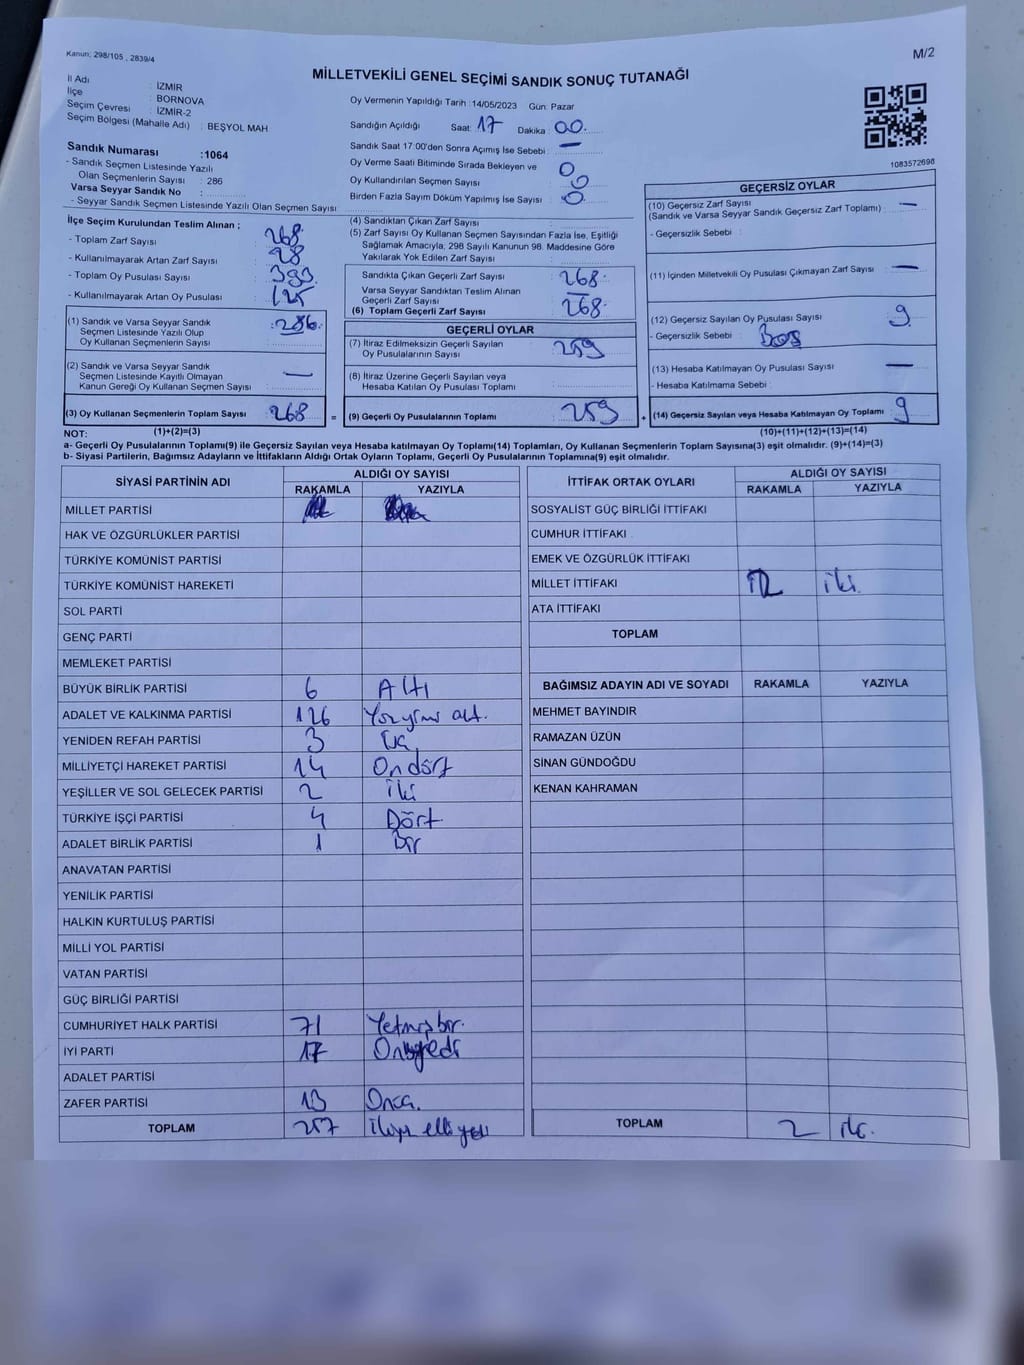 Kanun: 298/105 , 2839/4
M/2
MİLLETVEKİLİ GENEL SEÇİMİ SANDIK SONUÇ TUTANAĞI
İl Adı : İZMİR
İlçe : BORNOVA
Seçim Çevresi : İZMİR-2
Seçim Bölgesi (Mahalle Adı) : BEŞYOL MAH
Sandık Numarası :1064
- Sandık Seçmen Listesinde Yazılı
Olan Seçmenlerin Sayısı : 286
Varsa Seyyar Sandık No :
- Seyyar Sandık Seçmen Listesinde Yazılı Olan Seçmen Sayısı
Oy Vermenin Yapıldığı Tarih :14/05/2023 Gün: Pazar
Sandığın Açıldığı Saat: 17 Dakika : 00
Sandık Saat 17:00'den Sonra Açımış İse Sebebi : —
Oy Verme Saati Bitiminde Sırada Bekleyen ve 0
Oy Kullandırılan Seçmen Sayısı 0
Birden Fazla Sayım Döküm Yapılmış İse Sayısı 0
1083572698
İlçe Seçim Kurulundan Teslim Alınan ;
- Toplam Zarf Sayısı 268
- Kullanılmayarak Artan Zarf Sayısı 28
- Toplam Oy Pusulası Sayısı 393
- Kullanılmayarak Artan Oy Pusulası 125
(1) Sandık ve Varsa Seyyar Sandık
Seçmen Listesinde Yazılı Olup
Oy Kullanan Seçmenlerin Sayısı :286
(2) Sandık ve Varsa Seyyar Sandık
Seçmen Listesinde Kayıtlı Olmayan
Kanun Gereği Oy Kullanan Seçmen Sayısı : —
(3) Oy Kullanan Seçmenlerin Toplam Sayısı 268
(1)+(2)=(3)
(4) Sandıktan Çıkan Zarf Sayısı :
(5) Zarf Sayısı Oy Kullanan Seçmen Sayısından Fazla İse, Eşitliği
Sağlamak Amacıyla; 298 Sayılı Kanunun 98. Maddesine Göre
Yakılarak Yok Edilen Zarf Sayısı :
Sandıkta Çıkan Geçerli Zarf Sayısı 268
Varsa Seyyar Sandıktan Teslim Alınan
Geçerli Zarf Sayısı —
(6) Toplam Geçerli Zarf Sayısı 268
GEÇERLİ OYLAR
(7) İtiraz Edilmeksizin Geçerli Sayılan
Oy Pusulalarının Sayısı 259
(8) İtiraz Üzerine Geçerli Sayılan veya
Hesaba Katılan Oy Pusulası Toplamı
= (9) Geçerli Oy Pusulalarının Toplamı 259
GEÇERSİZ OYLAR
(10) Geçersiz Zarf Sayısı
(Sandık ve Varsa Seyyar Sandık Geçersiz Zarf Toplamı) : —
- Geçersizlik Sebebi :
(11) İçinden Milletvekili Oy Pusulası Çıkmayan Zarf Sayısı —
(12) Geçersiz Sayılan Oy Pusulası Sayısı 9
- Geçersizlik Sebebi : BOŞ
(13) Hesaba Katılmayan Oy Pusulası Sayısı —
- Hesaba Katılmama Sebebi :
+ (14) Geçersiz Sayılan veya Hesaba Katılmayan Oy Toplamı 9
(10)+(11)+(12)+(13)=(14)
NOT:
a- Geçerli Oy Pusulalarının Toplamı(9) ile Geçersiz Sayılan veya Hesaba katılmayan Oy Toplamı(14) Toplamları, Oy Kullanan Seçmenlerin Toplam Sayısına(3) eşit olmalıdır. (9)+(14)=(3)
b- Siyasi Partilerin, Bağımsız Adayların ve İttifakların Aldığı Ortak Oyların Toplamı, Geçerli Oy Pusulalarının Toplamına(9) eşit olmalıdır.
SİYASİ PARTİNİN ADI ALDIĞI OY SAYISI
RAKAMLA YAZIYLA
MİLLET PARTİSİ
HAK VE ÖZGÜRLÜKLER PARTİSİ
TÜRKİYE KOMÜNİST PARTİSİ
TÜRKİYE KOMÜNİST HAREKETİ
SOL PARTİ
GENÇ PARTİ
MEMLEKET PARTİSİ
BÜYÜK BİRLİK PARTİSİ 6 Altı
ADALET VE KALKINMA PARTİSİ 126 Yüzyirmi altı
YENİDEN REFAH PARTİSİ 3 Üç
MİLLİYETÇİ HAREKET PARTİSİ 14 Ondört
YEŞİLLER VE SOL GELECEK PARTİSİ 2 İki
TÜRKİYE İŞÇİ PARTİSİ 4 Dört
ADALET BİRLİK PARTİSİ 1 bir
ANAVATAN PARTİSİ
YENİLİK PARTİSİ
HALKIN KURTULUŞ PARTİSİ
MİLLİ YOL PARTİSİ
VATAN PARTİSİ
GÜÇ BİRLİĞİ PARTİSİ
CUMHURİYET HALK PARTİSİ 71 Yetmişbir
İYİ PARTİ 17 Onyedi
ADALET PARTİSİ
ZAFER PARTİSİ 13 Onüç
TOPLAM 257 İkiyüz elli yedi
İTTİFAK ORTAK OYLARI ALDIĞI OY SAYISI
RAKAMLA YAZIYLA
SOSYALİST GÜÇ BİRLİĞİ İTTİFAKI
CUMHUR İTTİFAKI
EMEK VE ÖZGÜRLÜK İTTİFAKI
MİLLET İTTİFAKI 2 iki
ATA İTTİFAKI
TOPLAM
BAĞIMSIZ ADAYIN ADI VE SOYADI RAKAMLA YAZIYLA
MEHMET BAYINDIR
RAMAZAN ÜZÜN
SİNAN GÜNDOĞDU
KENAN KAHRAMAN
TOPLAM 2 iki